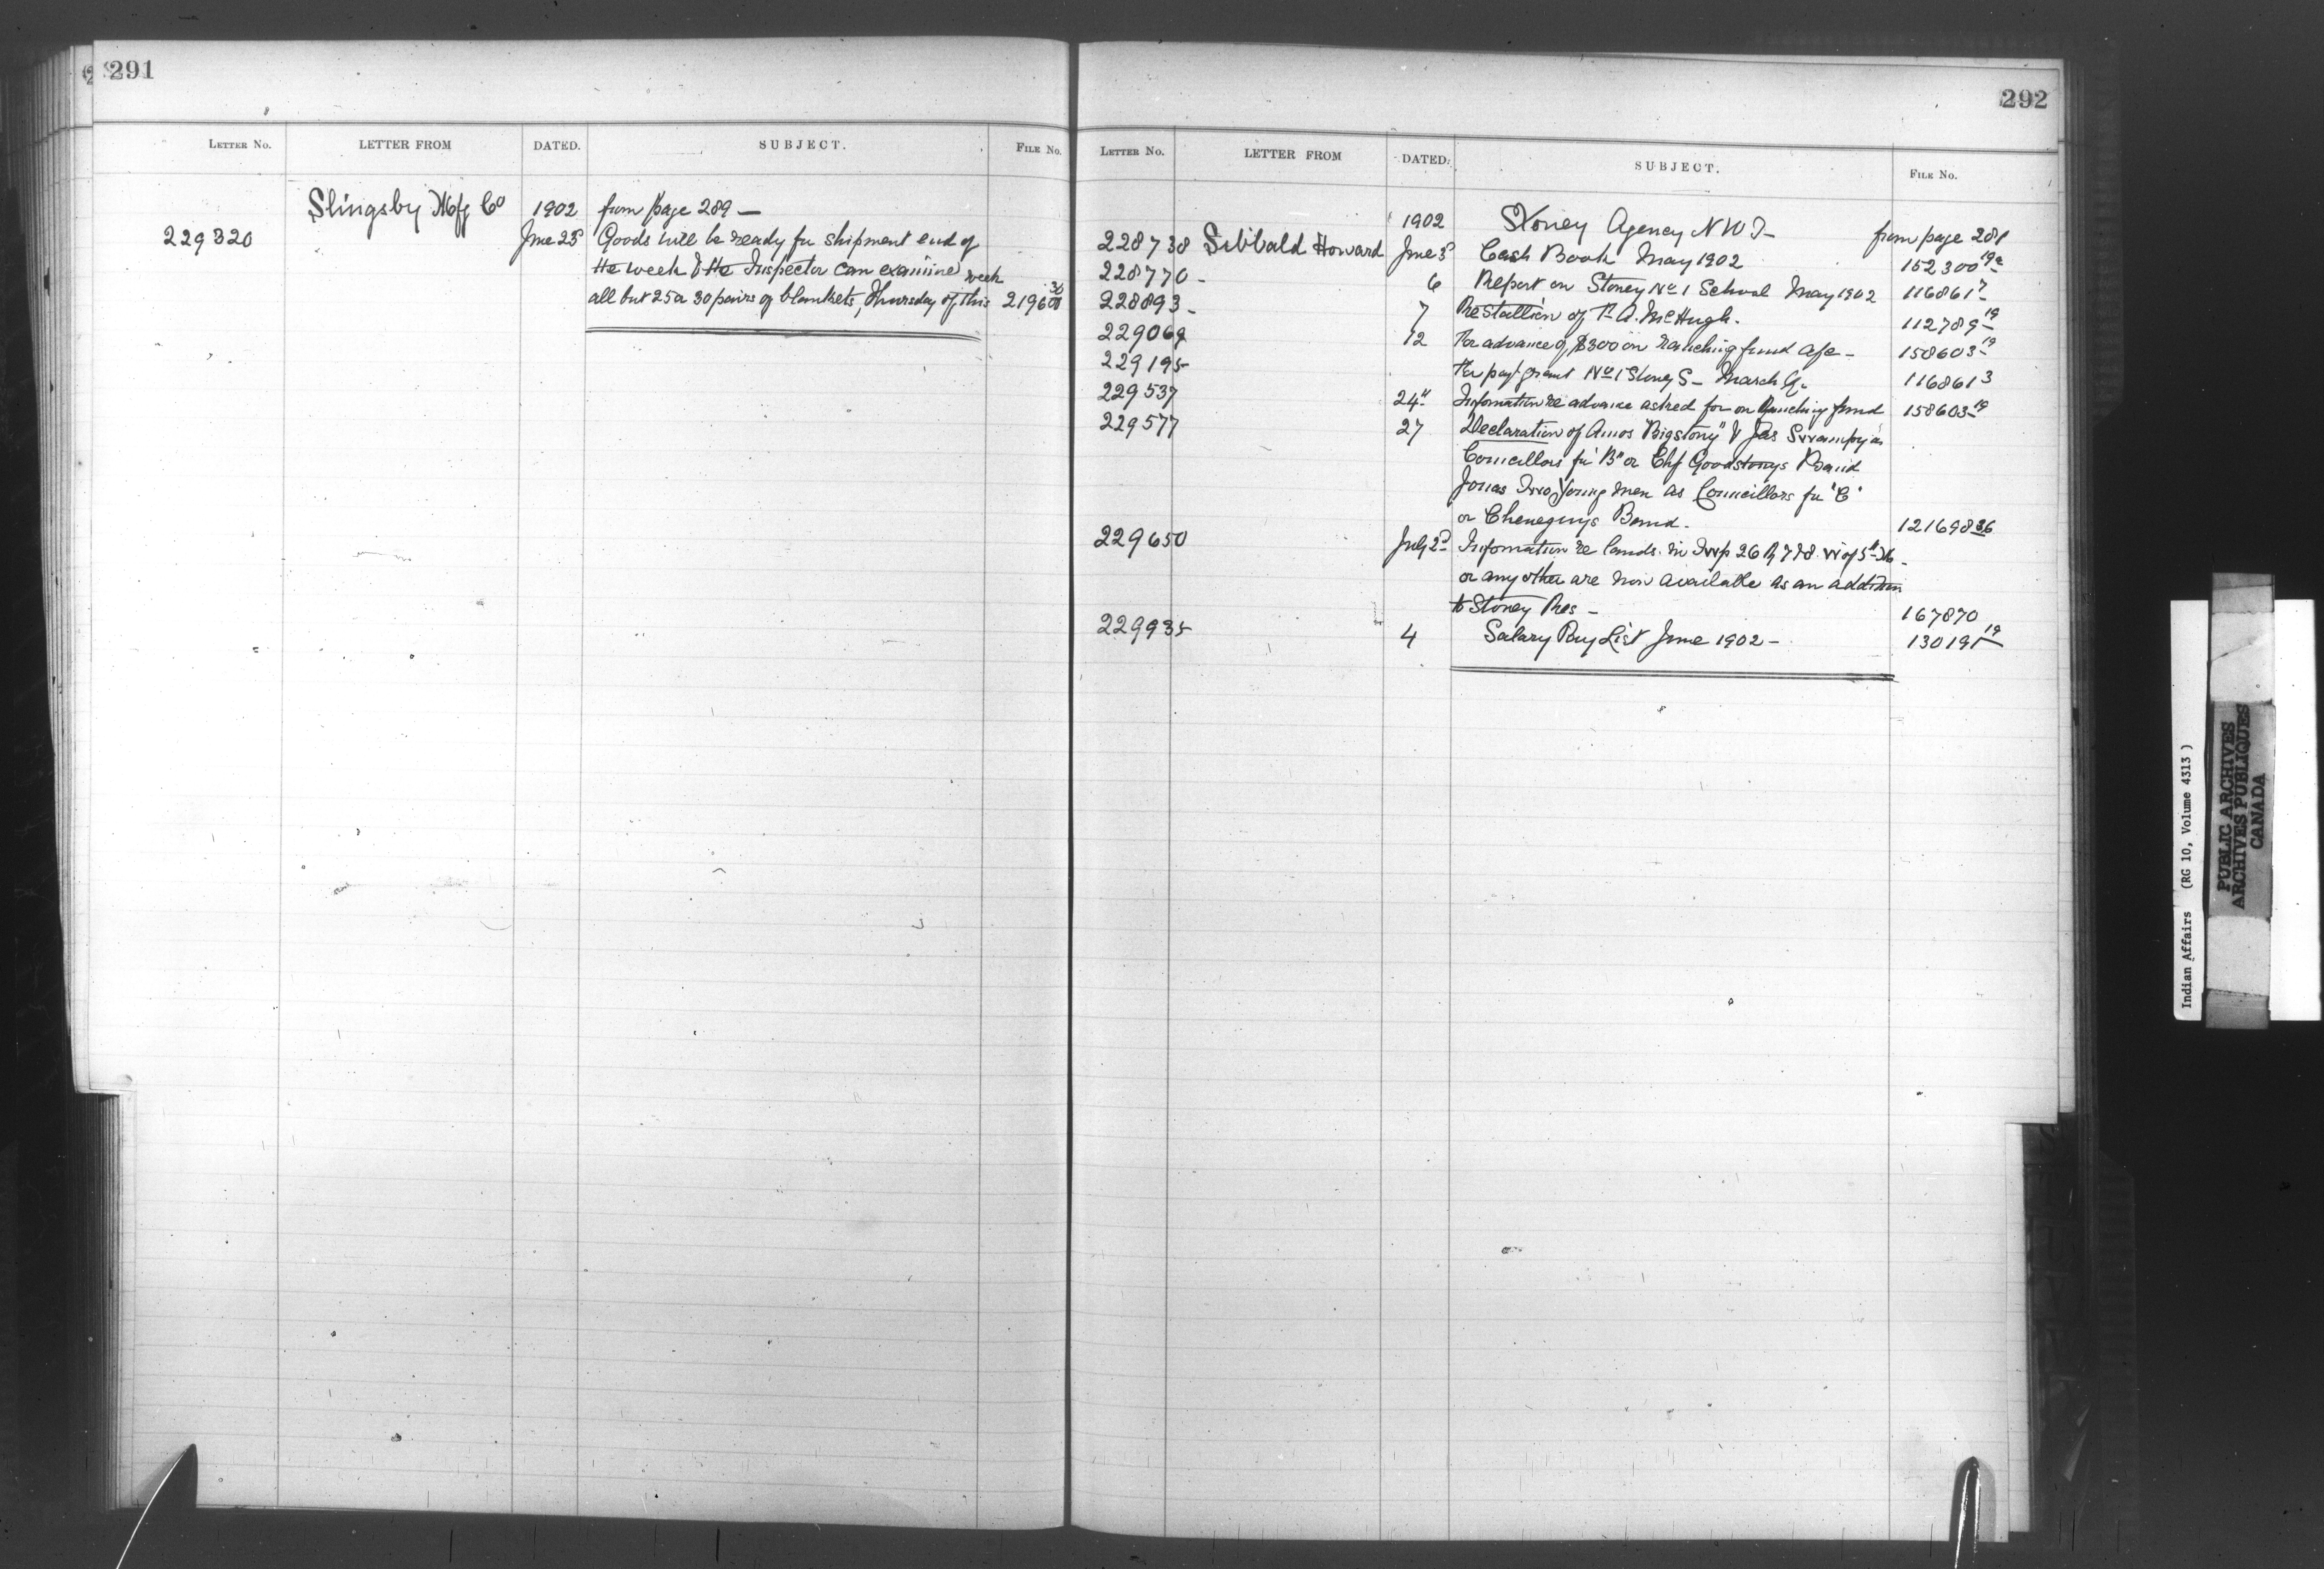 291
LETTER No. LETTER FROM DATED. SUBJECT. FILE No.
Slingsby Mfg Co 1902 from page 289 —
229320 June 25 Goods will be ready for shipment end of
the week & the Inspector can examine
all but 25 or 30 pairs of blankets, Thursday of this week 219600
292
LETTER No. LETTER FROM DATED. SUBJECT. FILE No.
1902 Stoney Agency NWT — from page 281
228738 Sibbald Howard June 3 Cash Book May 1902 152300 19a
228770 - 6 Report on Stoney No 1 School May 1902 116861 7
228893 - 7 Re Stallion of McHugh. 112789 19
229069 12 For advance of $300 on ranching fund a/c — 158603 19
229195 For payt grant No 1 Stoney S — March Qr 116861 3
229537 24" Information re advance asked for on Ranching fund 158603 19
229577 27 Declaration of Amos Bigstony & Jas Swampy as
Councillors for "B" or Chf Goodstonys Band
Jonas Two Young men as Councillors for "C"
or Cheneguys Band. 121698 36
229650 July 2d Information re lands in Twp 26 R 7 & 8 W of 5th M
or any other are now available as an addition
to Stoney Res — 167870
229935 4 Salary Pay List June 1902 — 130191 19
Indian Affairs (RG 10, Volume 4313)
PUBLIC ARCHIVES
ARCHIVES PUBLIQUES
CANADA